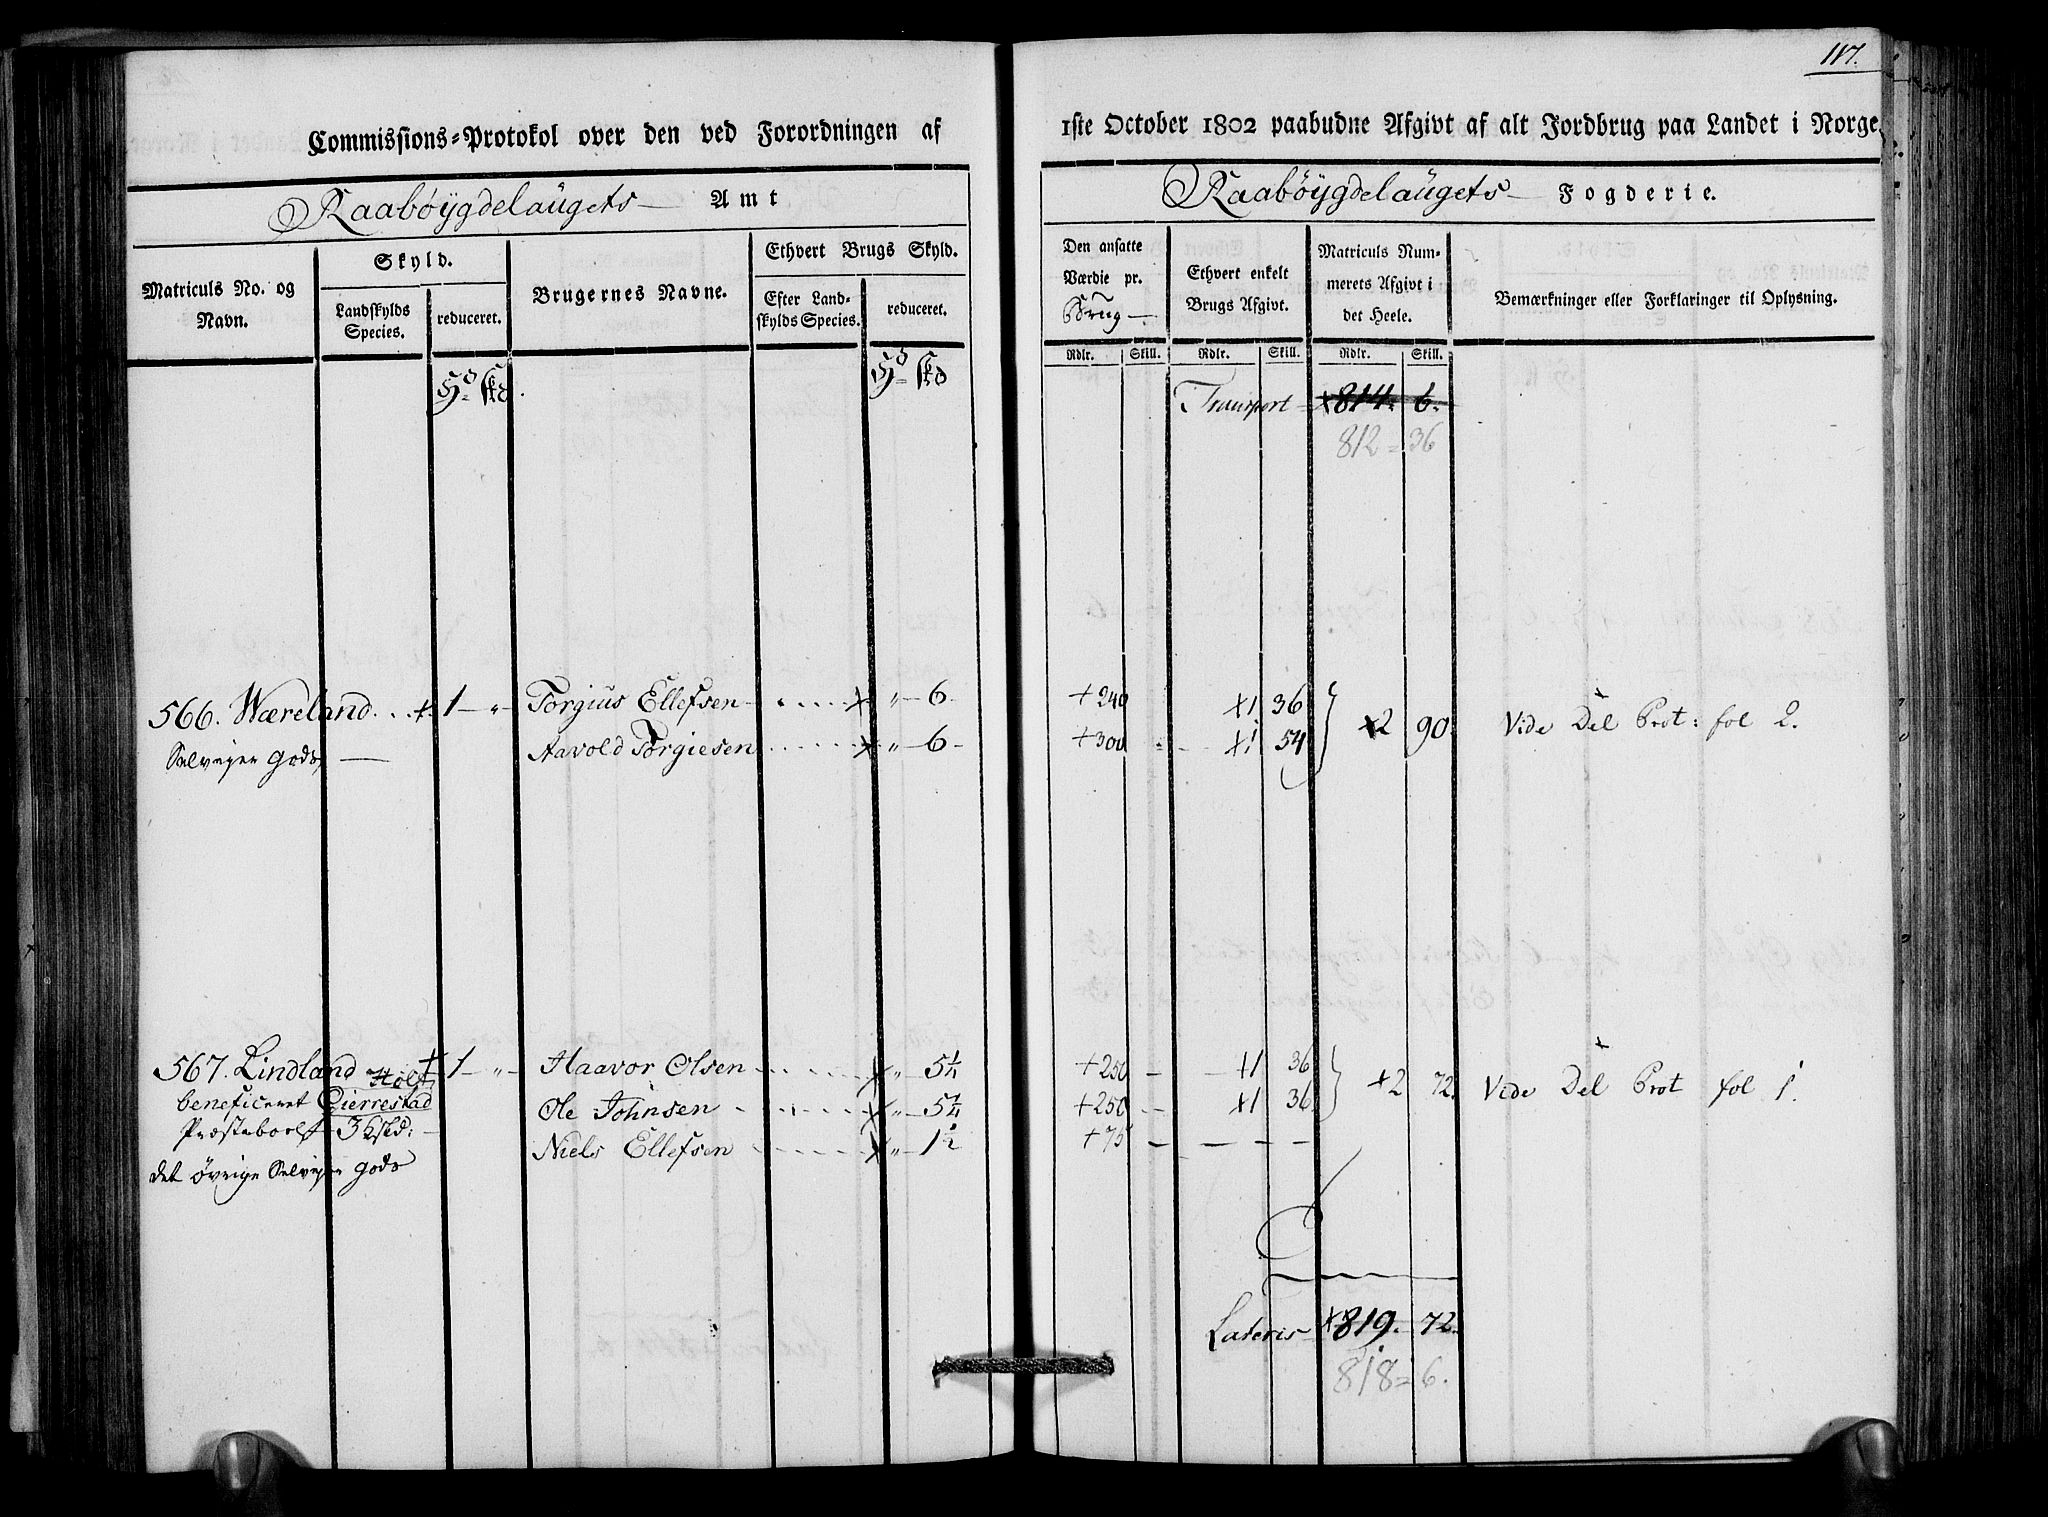 117.
Commissions-Protokol over den ved Forordningen af 1ste October 1802 paabudne Afgivt af alt Jordbrug paa Landet i Norge.
Raabøygdelaugets Amt
Raabøygdelaugets Fogderie.
Matriculs No. og Navn.
Skyld.
Landskylds Species.
reduceret.
Brugernes Navne.
Ethvert Brugs Skyld.
Efter Landskylds Species.
reduceret.
Den ansatte Værdie pr. Brug
Ethvert enkelt Brugs Afgivt.
Matriculs Nummerets Afgivt i det Heele.
Bemærkninger eller Forklaringer til Oplysning.
Rdlr. Skill. Rdlr. Skill. Rdlr. Skill.
Transport 814. 6.
812 = 36
566. Wæreland. 1 - " - Torgius Ellefsen " - 6. +240 1 36
Selveyer Gods Aavold Torgiesen " - 6 - +300 1 54 2 90. Vide Del Prot: fol 2.
567. Lindland 1 - " - Haavor Olsen " - 5¼ +250 - 1 36
beneficeret Gierrestad Ole Johnsen " - 5¼ +250 - 1 36 2 72. Vide Del Prot fol 1.
Præstebol 3 Niels Ellefsen " - 1½ +75 - - - -
det øvrige Selveyer Gods
Lateris 819. 72.
818 = 6.